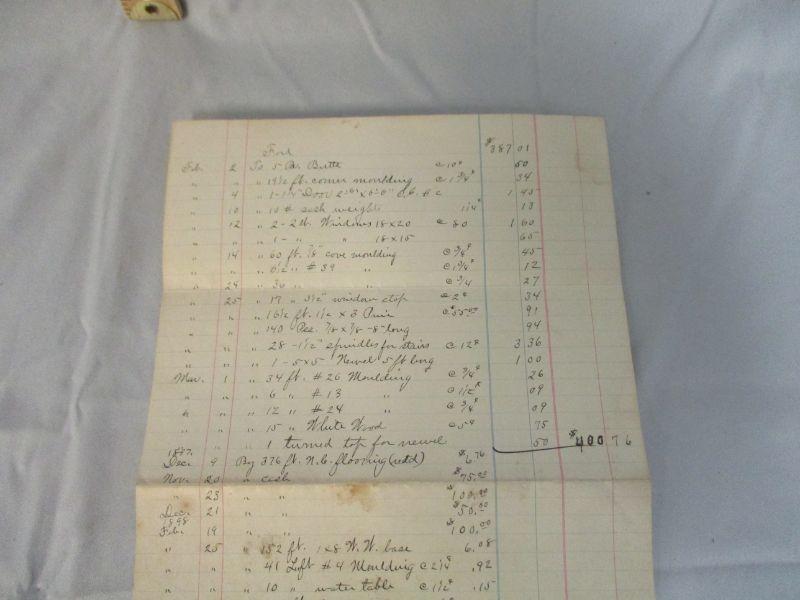 Ford $387 01
Feb. 2 To 5 Pr. Butts @ 10¢ 50
" " " 19½ ft. corner moulding @ 1¾¢ 34
" 4 " 1-1¼" Door 2'6" x 6'6" O.G. 1 45
" 10 " 10 # sash weights 1¼¢ 13
" 12 " 2-2 lt. Windows 18x20 @ 80 1 60
" " " 1- " " 18x15 65
" 14 " 60 ft. ⅞" cove moulding @ ¾¢ 45
" " " 6½ " #39 " @ 1¾¢ 12
" 24 " 36 " " @ ¾ 27
" 25 " 17 " 3½" window stop @ 2¢ 34
" " " 16½ ft. 1½ x 3 Pine @ $55.00 91
" " " 140 Pcs. ⅞ x ⅞ -8" long 94
" " " 28-1½" spindles for stairs @ 12¢ 3 36
" " " 1-5x5 Newel 5 ft long 1 00
Mar. 1 " 34 ft. #26 Moulding @ ¾¢ 26
" " " 6 " #13 " @ 1½¢ 09
" " " 12 " #24 " @ ¾¢ 09
" " " 15 " White Wood @ 5¢ 75
" " " 1 turned top for newel 50 $400 76
1897.
Dec. 9 By 376 ft. N.C. flooring (retd) $6.76
Nov. 20 " cash $75.00
" 23 " " $100.00
Dec. 21 " " $50.00
1898
Feb. 19 " " $100.00
" 25 " 152 ft. 1x8 W.W. base 6.08
" " " 41 L. ft #4 Moulding @ 2¼¢ .92
" " " 10 " water table @ 1½¢ .15